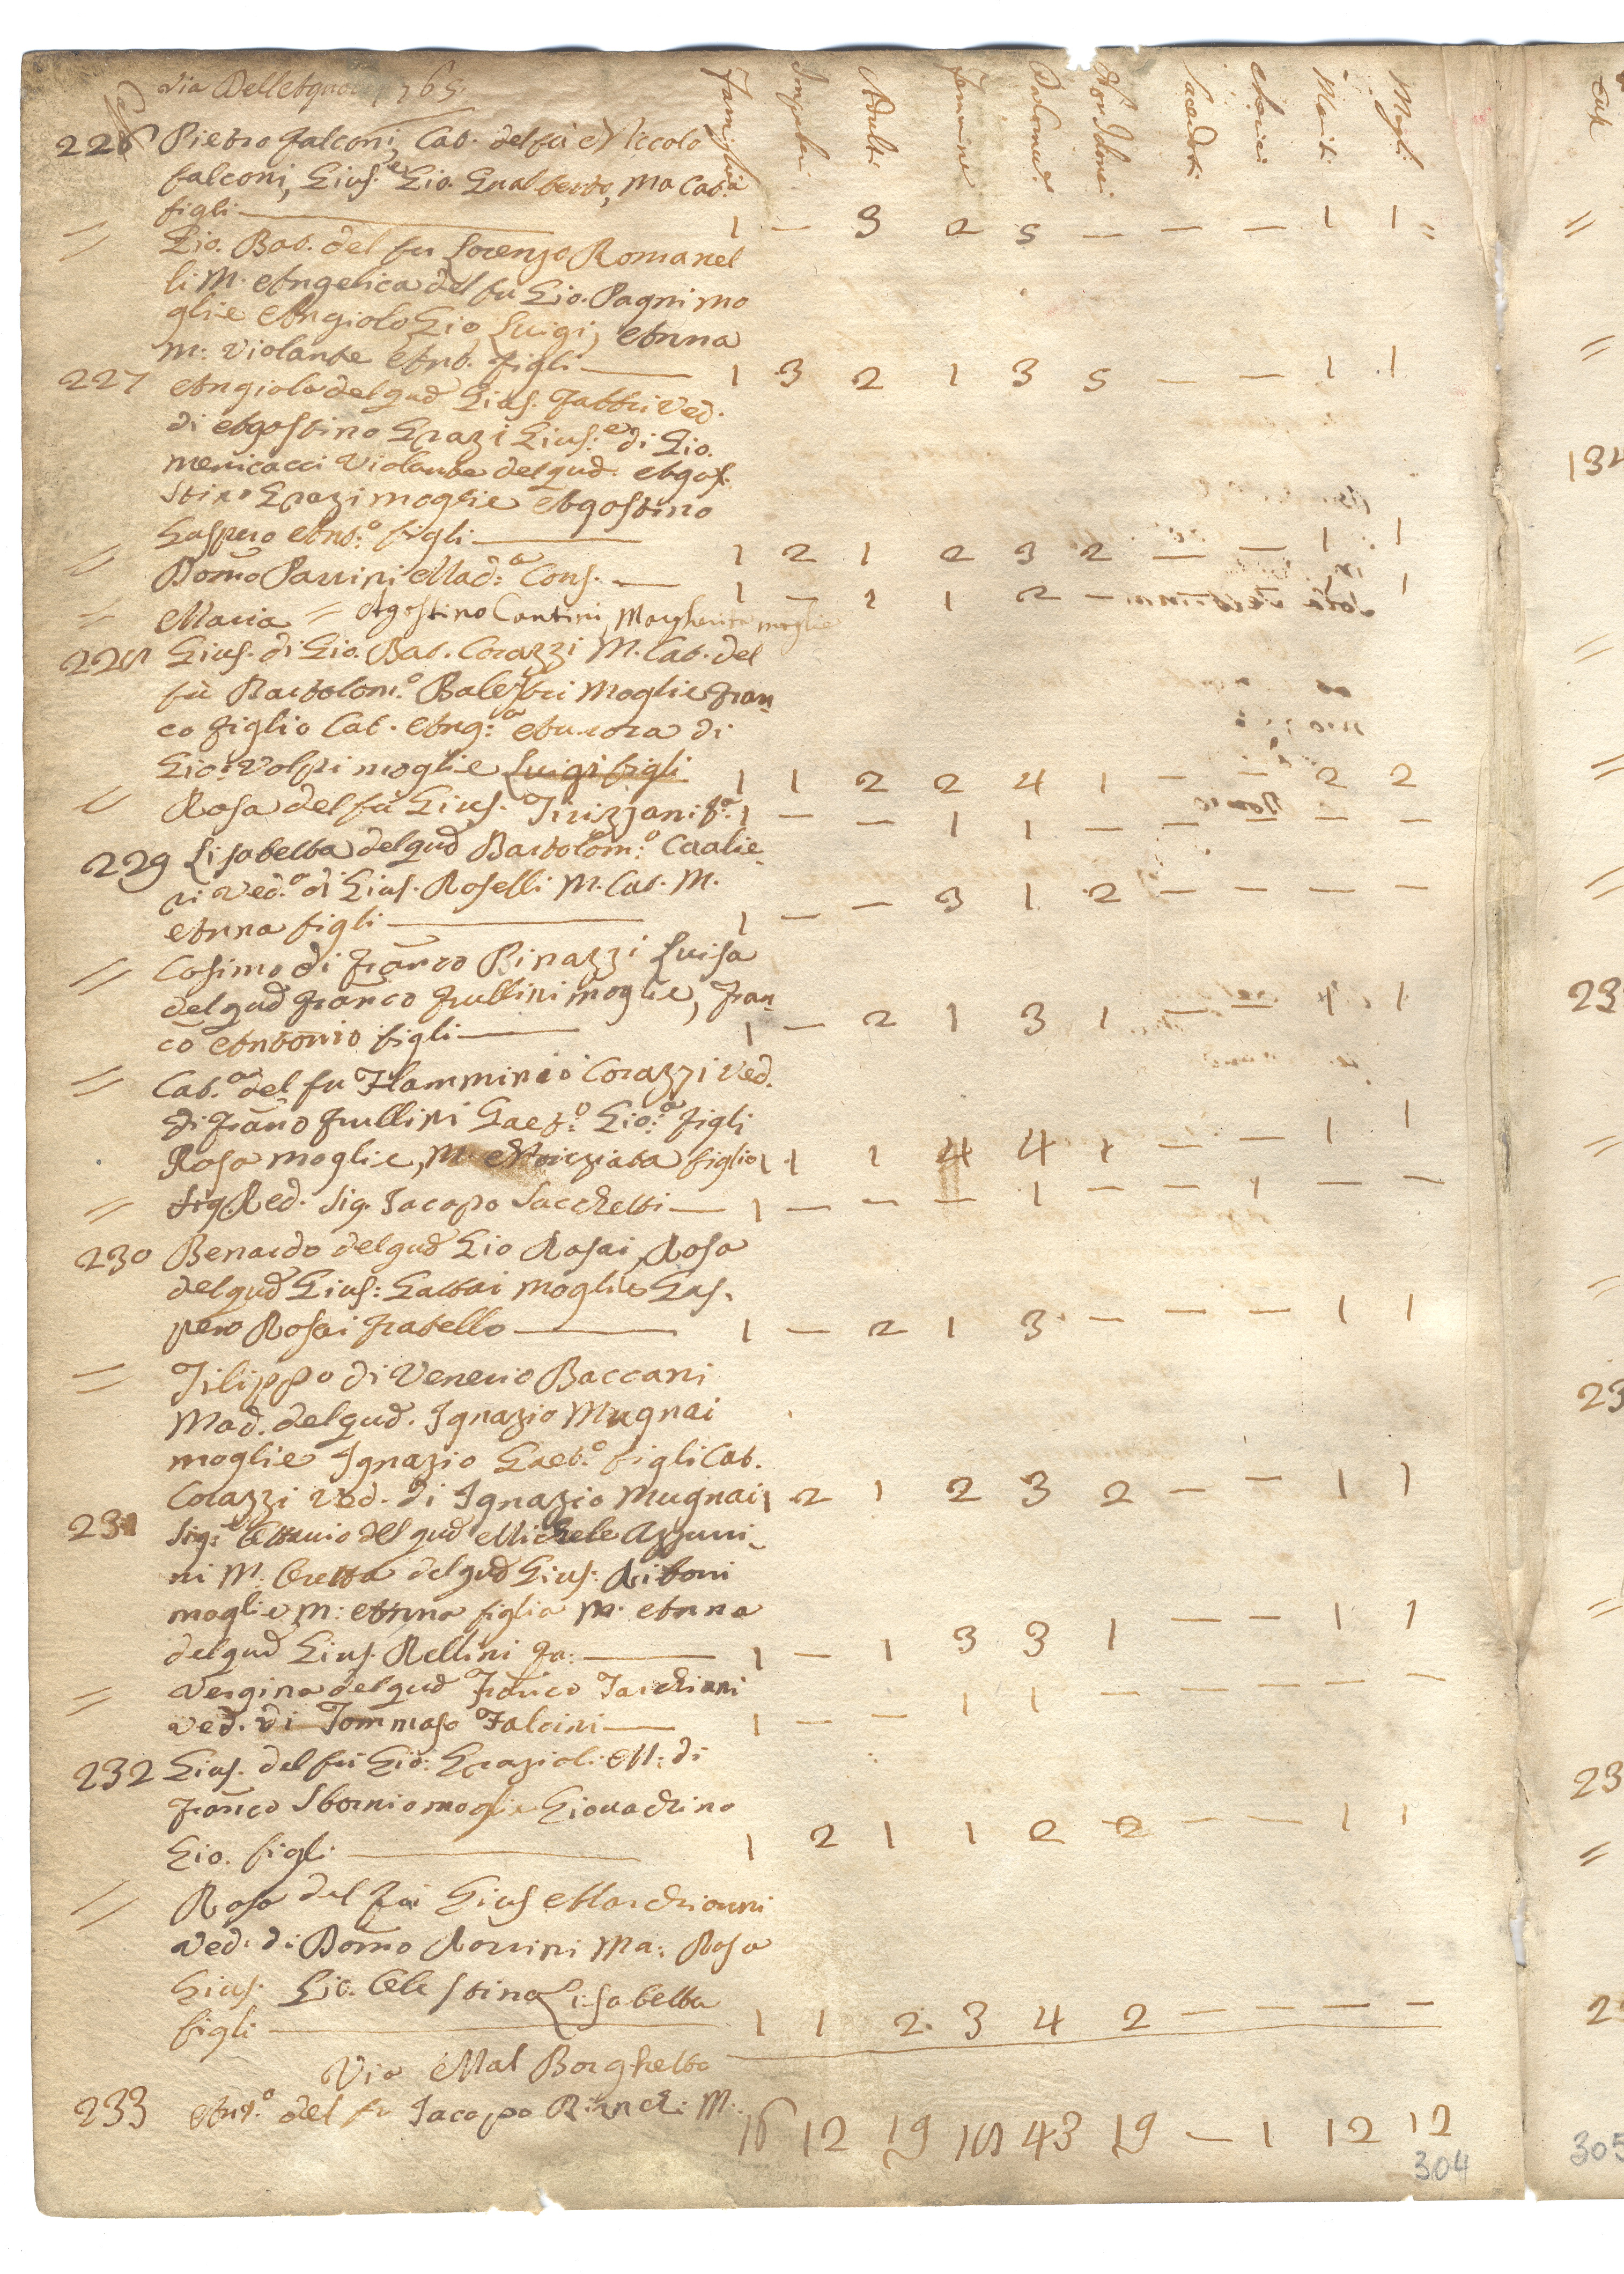 Via Dell 1765.
Case Famiglie Impuberi Adulti Femmine Da Comun.e Non Idonei Sacerdoti Cherici Mariti Mogli
226 Pietro Falconi, Cat. del fù Niccolo
Falconi, Gius.e Gio. Gualberto, Ma Cat.a
figli 1 — 3 2 5 — — — 1 1
= Gio. Bat. del fu Lorenzo Romanel
li M. Angelica del fu Gio. Pagni mo
glie Angiolo Gio Luigi, Anna
M: Violante Ant. figli 1 3 2 1 3 5 — — 1 1
227 Angiola del qud Gius. Fattri Ved.
di Agostino Grazi Gius.e di Gio.
Menicacci Violante del qud. Ago
stino Grazi moglie Agostino
Gaspero Ant.o figli 1 2 1 2 3 2 — — 1 1
= Dom̃o Parrini Mad.a Cons. 1 — 1 1 2 — — — 1 1
= Maria = Agostino Cantini, Margherita moglie
228 Gius. di Gio. Bat. Corazzi M. Cat. del
fù Bartolom.o Balestri Moglie Fran
co figlio Cat. Ang.a Aurora di
Gio: Volpi moglie Luigi figli 1 1 2 2 4 1 — — 2 2
= Rosa del fù Gius. Trizzani f.a 1 — — 1 1 — — — — —
229 Lisabetta del qud Bartolom.o Cavalie
ri Ved.a di Gius. Roselli M. Cat. M.
Anna figli 1 — — 3 1 2 — — — —
= Cosimo di Franco Binazzi Luisa
del qud Franco Frullini moglie, Fran
co Antonio figli 1 — 2 1 3 1 — — 1 1
= Cat.a del fu Flamminio Corazzi Ved.
di Franco Frullini Gaet.o Gio.a figli
Rosa moglie, M. Nunziata figlia 1 1 1 4 4 1 — — 1 1
= Sig. Red. Sig. Jacopo Sacchetti 1 — — — 1 — — 1 — —
230 Benardo del qud Gio Rosai, Rosa
del qud Gius: Gattai moglie Gas.
pero Rosai fratello 1 — 2 1 3 — — — 1 1
= Filippo di Venerio Baccani
Mad. del qud. Ignazio Mugnai
moglie Ignazio Gaet.o figli Cat.
Corazzi Ved. di Ignazio Mugnai 1 2 1 2 3 2 — — 1 1
231 Sig: Ottavio del qud Michele Azzuri
ni M. Oretta del qud Gius: Ritoni
moglie M: Anna figlia M. Anna
del qud Gius. Rellini fa: 1 — 1 3 3 1 — — 1 1
= Vergina del qud Franco Tarchiani
Ved. di Tommaso Falcini 1 — — 1 1 — — — — —
232 Gius. del fù Gio: Graziol. M: di
Franco Sbornio moglie Giovachino
Gio. figli 1 2 1 1 2 2 — — 1 1
= Rosa del fù Gius Marchionni
Ved. di Dom̃o Rorrini Ma: Rosa
Gius. Gio. Celestina Lisabetta
figli 1 1 2 3 4 2 — — — —
Via Mal Borghetto
233 Ant.o del fu Jacopo Bianchi M.
16 12 19 18 43 19 — 1 12 12
304
305